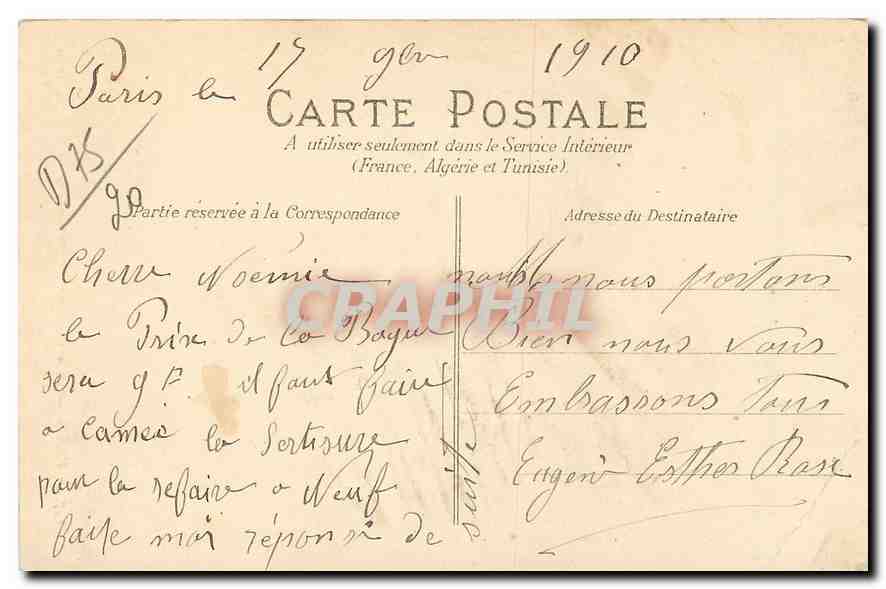 Paris le 17 9bre 1910
CARTE POSTALE
A utiliser seulement dans le Service Intérieur
(France, Algérie et Tunisie).
D75
90
Partie réservée à la Correspondance
Cherre Noémie
le Prix de la Bague
sera 9F il faut faire
a camée la Sertisure
pour la refaire a Neuf
faite moi réponse de
suite
Adresse du Destinataire
nous nous portons
Bien nous vous
Embrassons tous
Eugène Esther Rose
CRAPHIL